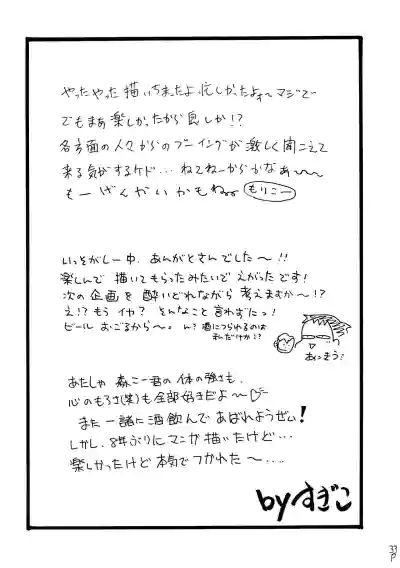 やったやった描いちまったよ 忙しかったよォ〜マジで
でもまぁ楽しかったから良しか!?
各方面の人々からのブーイングが激しく聞こえて
来る気がするケド… ねてねーからかなぁ〜〜
もーげんかいかもねぇ もりこー
いっそがしー中、あんがとさんでした〜!!
楽しんで描いてもらったみたいでえがったです!
次の企画を酔いどれながら考えまむか〜!?
え!?もうイヤ?そんなこと言わずにっ!
ビールおごるから〜。 ん?酒につられるのは
まんだけか!?
あたしゃ 森こー君の体の強さも
心のもろさ(笑)も全部好きだよ〜
また一諸に酒飲んであばれようぜぃ!
しかし、8年ぶりにマンガ描いたけど…
楽しかったけど本気でつかれた〜‥‥
byすぎこ
33P